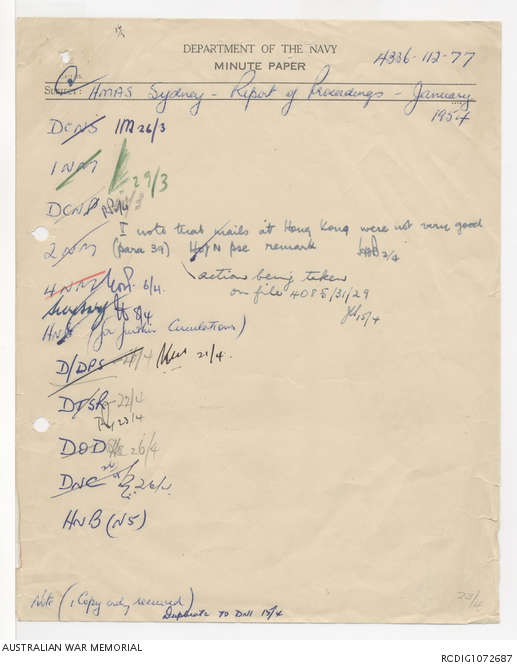 DEPARTMENT OF THE NAVY
MINUTE PAPER
4336-112-77
Subject: HMAS Sydney - Report of Proceedings - January
1954
DCNS 26/3
1NM 29/3
DCNP
I note that mails at Hong Kong were not very good
2NM (para 39) HofN pse remark 2/4
4NM 6/4.
action being taken
on file 4085/31/29
15/4
8/4
HNB (for further Circulations)
D/DPS 21/4.
DTSR 22/4
23/4
DOD 26/4
DNC 26/4
HNB (N5)
23/4
Note (1 Copy only received)
Duplicate to DNI 15/4
AUSTRALIAN WAR MEMORIAL
RCDIG1072687